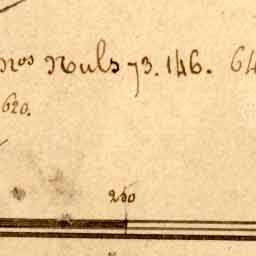 nos nuls 73. 146. 64
620.
250